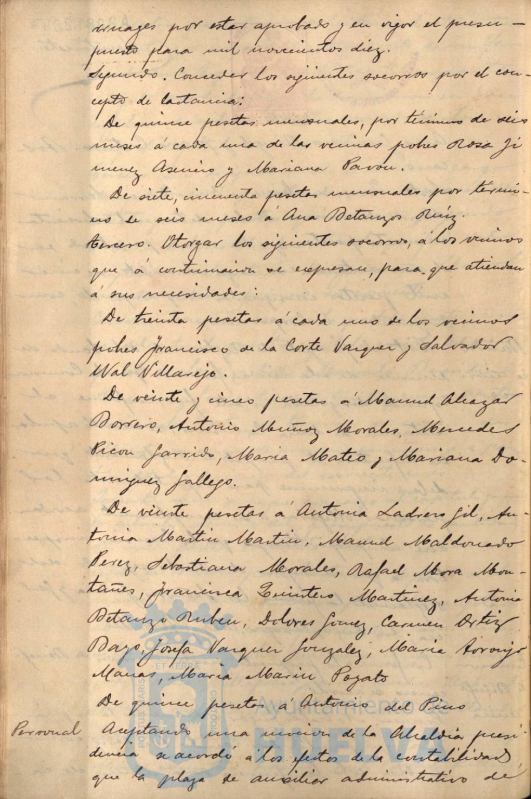 por estar aprobado y en vigor el presu-
puesto para mil novecientos diez.
Segundo. Conceder los siguientes socorros por el con-
cepto de lactancia:
De quince pesetas mensuales, por término de seis
meses á cada una de las vecinas pobres Rosa Ji
menez Asensio y Mariana Pavon.
De siete, cincuenta pesetas mensuales por térmi-
no de seis meses á Ana Betanzos Ruiz.
Tercero. Otorgar los siguientes socorros, á los vecinos
que á continuacion se expresan, para que atiendan
á sus necesidades:
De treinta pesetas á cada uno de los vecinos
pobres Francisco de la Corte Vazquez y Salvador
Wal Villarejo.
De veinte y cinco pesetas á Manuel Alcazar
Borrero, Antonio Muñoz Morales, Mercedes
Picon Garrido, Maria Mateo y Mariana Do-
minguez Gallego.
De veinte pesetas á Antonia Ladrero Gil, An-
tonia Martin Martin, Manuel Maldonado
Perez, Sebastiana Morales, Rafael Mora Mon-
tañes, Francisca Quintero Martinez, Antonia
Betanzo Ruben, Dolores Gomez, Carmen Ortiz
Bazo, Josefa Vazquez Gonzalez, Maria
Maria Marin
De quince pesetas á Antonio del Pino
Personal
Aceptando una mocion de la Alcaldia presi
dencia se acordó á los efectos de la contabilidad
que la plaza de auxiliar administrativo de
Ayuntamiento de
HUELVA